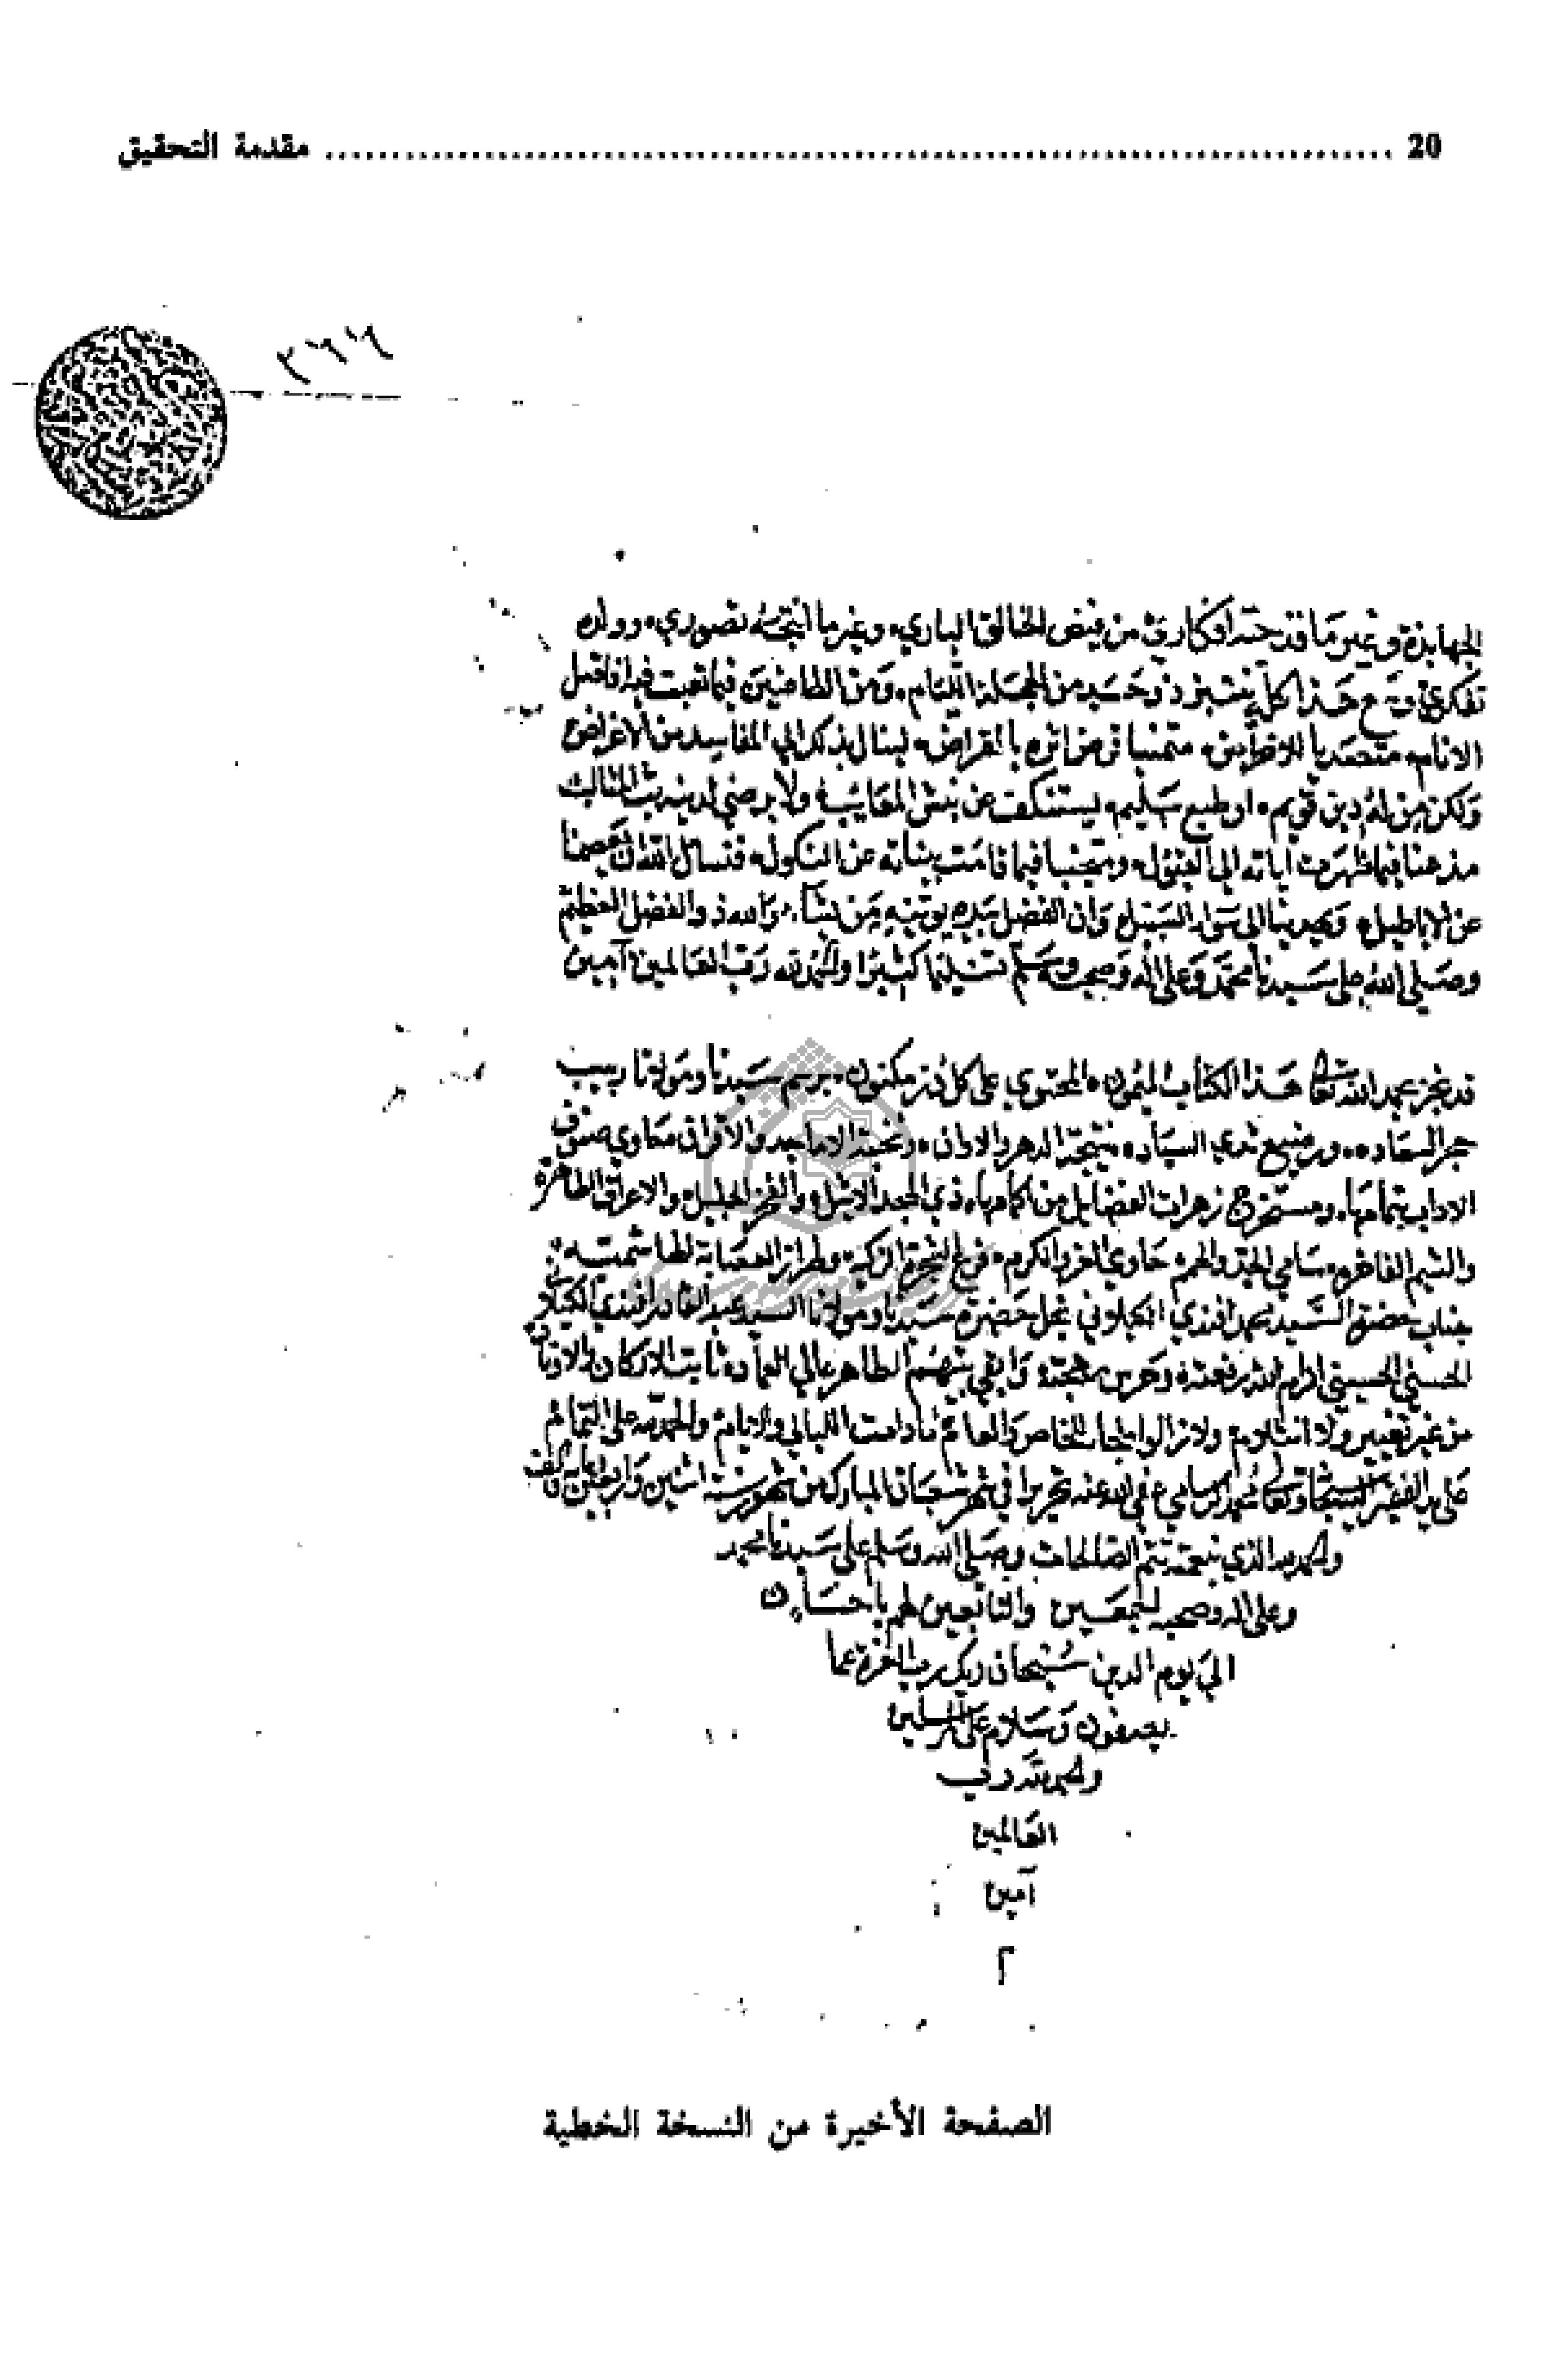 20 ........ مقدمة التحقيق
٢٦٦
الجهابذة وغير ما قدحته افكاري من فيض الخالق الباري وغير ما انتجته تصوري وولده
تفكري ومع هذا كله ذي حسد من الجهلة اللئام ومن الطاعنين فيما تعبت فيه افاضل
الانام متصديا للاعتراض متمنيا بالقراض لينال بذلك المفاسد من الاغراض
ولكن من له دين قويم او طبع سليم يستنكف عن نبش المعايب ولا يرضى لدينه بث المثالب
مذعنا فيما ظهرت اياته الى القبول ومتجنبا فيما قامت بيناته عن النكول فنسال الله ان يعصمنا
عن الاباطيل ويهدينا الى سواء السبيل وان الفضل بيده يوتيه من يشاء والله ذو الفضل العظيم
وصلى الله على سيدنا محمد وعلى اله وصحبه وسلم تسليما كثيرا والحمد لله رب العالمين آمين
قد نجز بحمد الله تعالى هذا الكتاب الميمون المحتوي على كل در مكنون برسم سيدنا ومولانا ربيب
حجر السعاده ورضيع ثدي السياده نتيجة الدهر والاوان ونخبة الاماجد والاقران حاوي صنوف
الاداب بتمامها ومستخرج زهرات الفضايل من اكمامها ذي المجد الاثيل والفخر الجليل والاعراق الطاهرة
والشيم الفاخره سامي الجد والهمم حاوي العز والكرم فرع الشجرة الزكية وطراز العصابة الهاشمية
جناب حضرة السيد محمد افندي الكيلاني نجل حضرة سيدنا ومولانا السيد عبد القادر افندي الكيلاني
الحسني الحسيني ادام الله رفعته وحرس مهجته وابقى بيتهم الطاهر عالي العماد ثابت الاركان والاوتاد
من غير تغيير ولا انثلام ولا زالوا ملجا للخاص والعام ما دامت الليالي والايام والحمد لله على التمام
على يد الفقير اليه سبحانه وتعالى عفى الله عنه تحريرا في شهر شعبان المبارك من شهور سنة اثنين واربعين والف
والحمد لله الذي بنعمته تتم الصالحات وصلى الله وسلم على سيدنا محمد
وعلى اله وصحبه اجمعين والتابعين لهم باحسان
الى يوم الدين سبحان ربك رب العزة عما
يصفون وسلام على المرسلين
والحمد لله رب
العالمين
آمين
م
الصفحة الأخيرة من النسخة الخطية